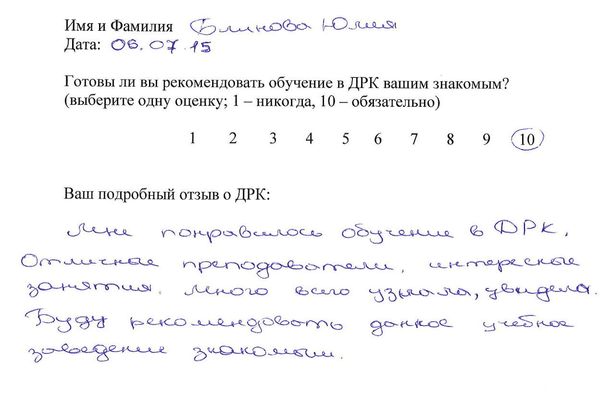 Имя и Фамилия Блинова Юлия
Дата: 06.07.15
Готовы ли вы рекомендовать обучение в ДРК вашим знакомым?
(выберите одну оценку; 1 – никогда, 10 – обязательно)
1 2 3 4 5 6 7 8 9 10
Ваш подробный отзыв о ДРК:
Мне понравилось обучение в ДРК.
Отличные преподователи, интересные
занятия. Много всего узнала, увидела.
Буду рекомендовать данное учебное
заведение знакомым.